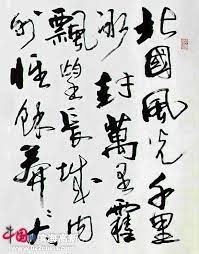 北國風光千里
冰封萬里雪
飄望長城內
外惟餘莽
中国